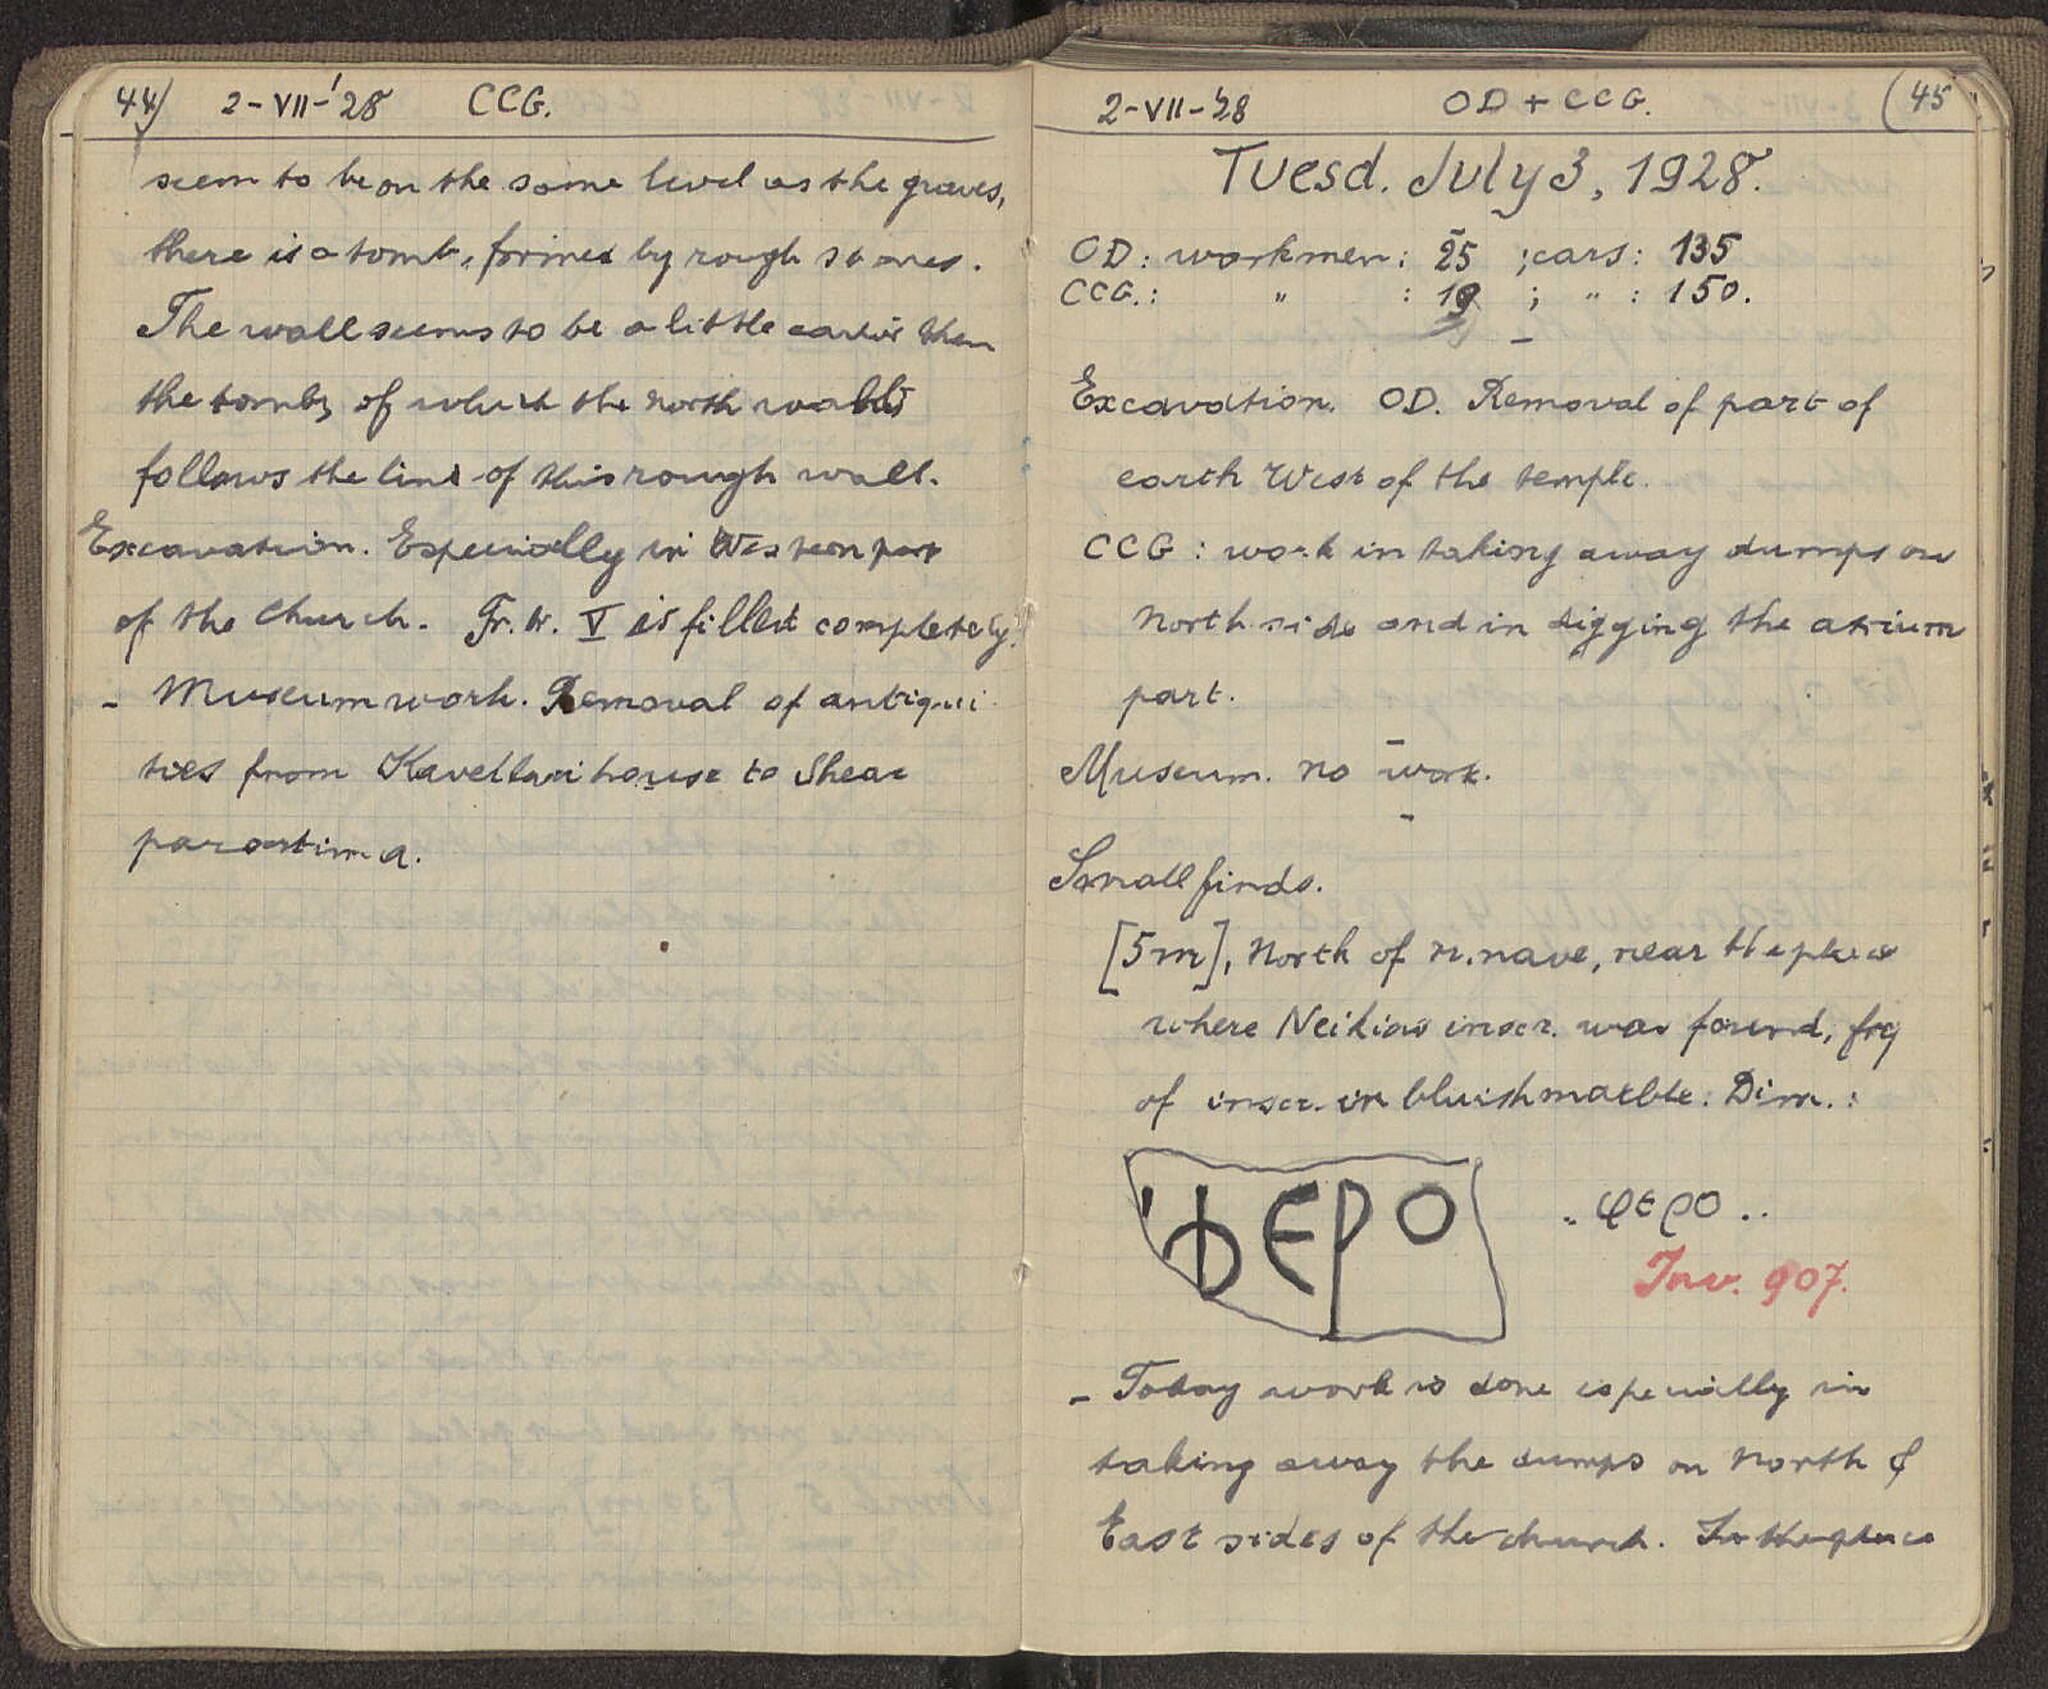 44) 2-VII-'28 CCG.
seem to be on the same level as the graves,
there is a tomb, formed by rough stones.
The wall seems to be a little earlier than
the tomb, of which the north wall
follows the line of this rough wall.
Excavation. Especially in Western part
of the church. Tr. W. V is filled completely.
- Museum work. Removal of antiqui
ties from Kavellari house to Shear
parartima.
2-VII-'28 OD + CCG. (45
Tuesd. July 3, 1928.
OD: workmen: 25 ; cars: 135
CCG.: " : 19 ; " : 150.
Excavation. OD. Removal of part of
earth West of the temple.
CCG: work in taking away dumps on
North side and in digging the atrium
part.
Museum. no work.
Small finds.
[5m], North of n. nave, near the place
where Neikias inscr. was found, frg
of inscr. in bluish marble: Dim.:
ΦΕΡΟ
.. φερο ..
Inv. 907.
- Today work is done especially in
taking away the dumps on North &
East sides of the church. In the place